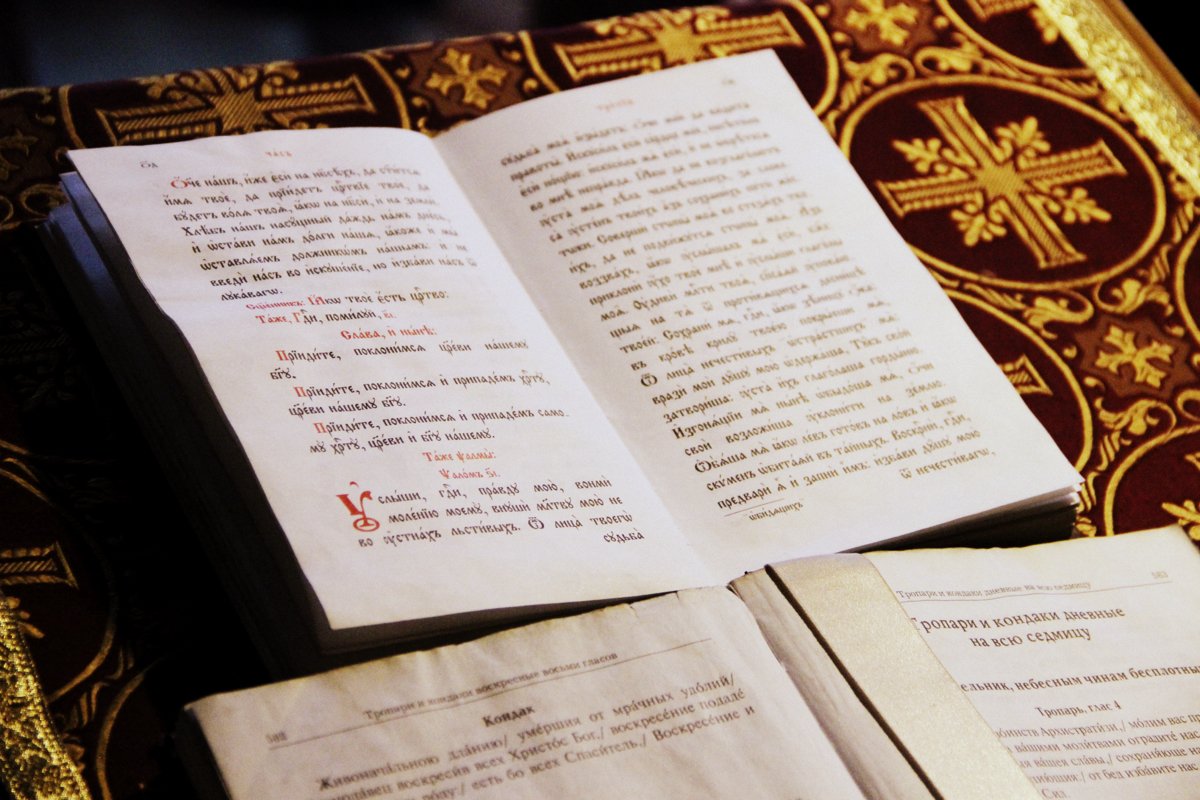 ча́съ
Ѻ҆́че на́шъ, и҆́же є҆сѝ на нб҃сѣ́хъ, да ст҃и́тсѧ
и҆́мѧ твоѐ, да прїи́детъ црⷭ҇твїе твоѐ, да
бꙋ́детъ во́лѧ твоѧ̀, ꙗ҆́кѡ на нб҃сѝ, и҆ на землѝ.
Хлѣ́бъ на́шъ насꙋ́щный да́ждь на́мъ дне́сь,
и҆ ѡ҆ста́ви на́мъ до́лги на́шѧ, ꙗ҆́коже и҆ мы̀
ѡ҆ставлѧ́емъ должникѡ́мъ на́шымъ: и҆ не
введѝ на́съ во и҆скꙋше́нїе, но и҆зба́ви на́съ ѿ
лꙋка́вагѡ.
Сщ҃е́нникъ: Ꙗ҆́кѡ твоѐ є҆́сть црⷭ҇тво:
Та́же, Гдⷭ҇и, поми́лꙋй, в҃і.
Сла́ва, и҆ ны́нѣ:
Прїиди́те, поклони́мсѧ цр҃е́ви на́шемꙋ
бг҃ꙋ.
Прїиди́те, поклони́мсѧ и҆ припаде́мъ хрⷭ҇тꙋ̀,
цр҃е́ви на́шемꙋ бг҃ꙋ.
Прїиди́те, поклони́мсѧ и҆ припаде́мъ само-
мꙋ̀ хрⷭ҇тꙋ̀, цр҃е́ви и҆ бг҃ꙋ на́шемꙋ.
Та́же ѱалмы̀:
Ѱало́мъ ѕ҃і.
Оу҆слы́ши, гдⷭ҇и, пра́вдꙋ мою̀, вонмѝ
моле́нїю моемꙋ̀, внꙋшѝ мл҃твꙋ мою̀ не
во ᲂу҆стна́хъ льсти́выхъ. Ѿ лица̀ твоегѡ̀
сꙋдьба̀
тре́тїй
сꙋдьба̀ моѧ̀ и҆зы́детъ: ѻ҆́чи моѝ да ви́дита
правоты̑. И҆скꙋси́лъ є҆сѝ се́рдце моѐ, посѣти́лъ
є҆сѝ но́щїю: и҆скꙋси́лъ мѧ̀ є҆сѝ, и҆ не ѡ҆брѣ́тесѧ
во мнѣ̀ непра́вда. Ꙗ҆́кѡ да не возглаго́лютъ
ᲂу҆ста̀ моѧ̑ дѣ́лъ человѣ́ческихъ, за словеса̀
ᲂу҆сте́нъ твои́хъ а҆́зъ сохрани́хъ пꙋти̑ же́с-
тѡки. Совершѝ стѡпы̀ моѧ̑ во стезѧ́хъ тво-
и҆́хъ, да не подви́жꙋтсѧ стѡпы̀ моѧ̑. А҆́зъ
воззва́хъ, ꙗ҆́кѡ ᲂу҆слы́шалъ мѧ̀ є҆сѝ, бж҃е:
приклонѝ ᲂу҆́хо твоѐ мнѣ̀ и҆ ᲂу҆слы́ши глаго́лы
моѧ̑. Оу҆дивѝ мл҃ти твоѧ̑, сп҃са́ѧй ᲂу҆пова́ю-
щыѧ на тѧ̀ ѿ проти́вѧщихсѧ десни́цѣ
твое́й: Сохрани́ мѧ, гдⷭ҇и, ꙗ҆́кѡ зѣ́ницꙋ ѻ҆́ка,
въ кро́вѣ крил̑ꙋ̀ твое́ю покры́еши мѧ̀.
Ѿ лица̀ нечести́выхъ ѡ҆стра́стшихъ мѧ̀:
вразѝ моѝ дꙋ́шꙋ мою̀ ѡ҆держа́ша, Тꙋ́къ сво́й
затвори́ша: ᲂу҆ста̀ и҆́хъ глаго́лаша горды́ню.
И҆згонѧ́щїи мѧ̀ ны́нѣ ѡ҆быдо́ша мѧ̀, ѻ҆́чи
своѝ возложи́ша ᲂу҆клони́ти на зе́млю.
Ѡ҆б̾ѧ́ша мѧ̀ ꙗ҆́кѡ ле́въ гото́въ на ло́въ и҆ ꙗ҆́кѡ
скѵ́менъ ѡ҆бита́ѧй въ та́йныхъ. Воскрⷭ҇нѝ, гдⷭ҇и,
предварѝ ѧ҆̀ и҆ запнѝ и҆̀мъ: и҆зба́ви дꙋ́шꙋ мою̀
ѿ нечести́вагѡ,
ѡ҆би́дѧщихъ
Тропари и кондаки воскресные восьми гласов
Кондак
Живонача́льною дла́нию/ уме́ршия от мра́чных удо́лий/
воскреси́в всех Христо́с Бог,/ воскресе́ние подаде́
есть бо всех Спаси́тель,/ Воскресе́ние и
Тропари и кондаки дневные на всю седмицу
Тропари и кондаки дневные
на всю седмицу
ельник, небесным чинам бесплотны
Тропарь, глас 4
во́инств Архистрати́зи,/ мо́лим вас п
ва́шими моли́твами огради́те на
ва́шея сла́вы,/ сохраня́юще н
от бед изба́вите нас
Сил.